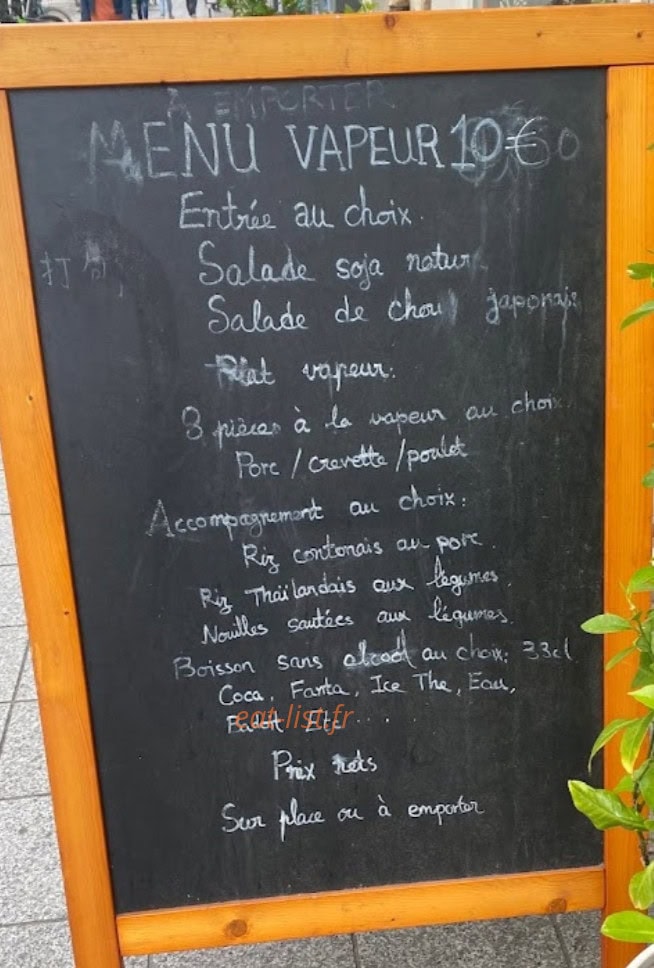 A EMPORTER
MENU VAPEUR 10€
Entrée au choix.
Salade soja natur
打
Salade de chou japonais
Plat vapeur:
8 pièces à la vapeur au choix
Porc / crevette / poulet
Accompagnement au choix:
Riz contonais au porc.
Riz Thaïlandais aux légumes.
Nouilles sautées aux légumes.
Boisson sans alcool au choix: 33cl
Coca, Fanta, Ice The, Eau,
Etc...
eat-list.fr
Prix nets
Sur place ou à emporter